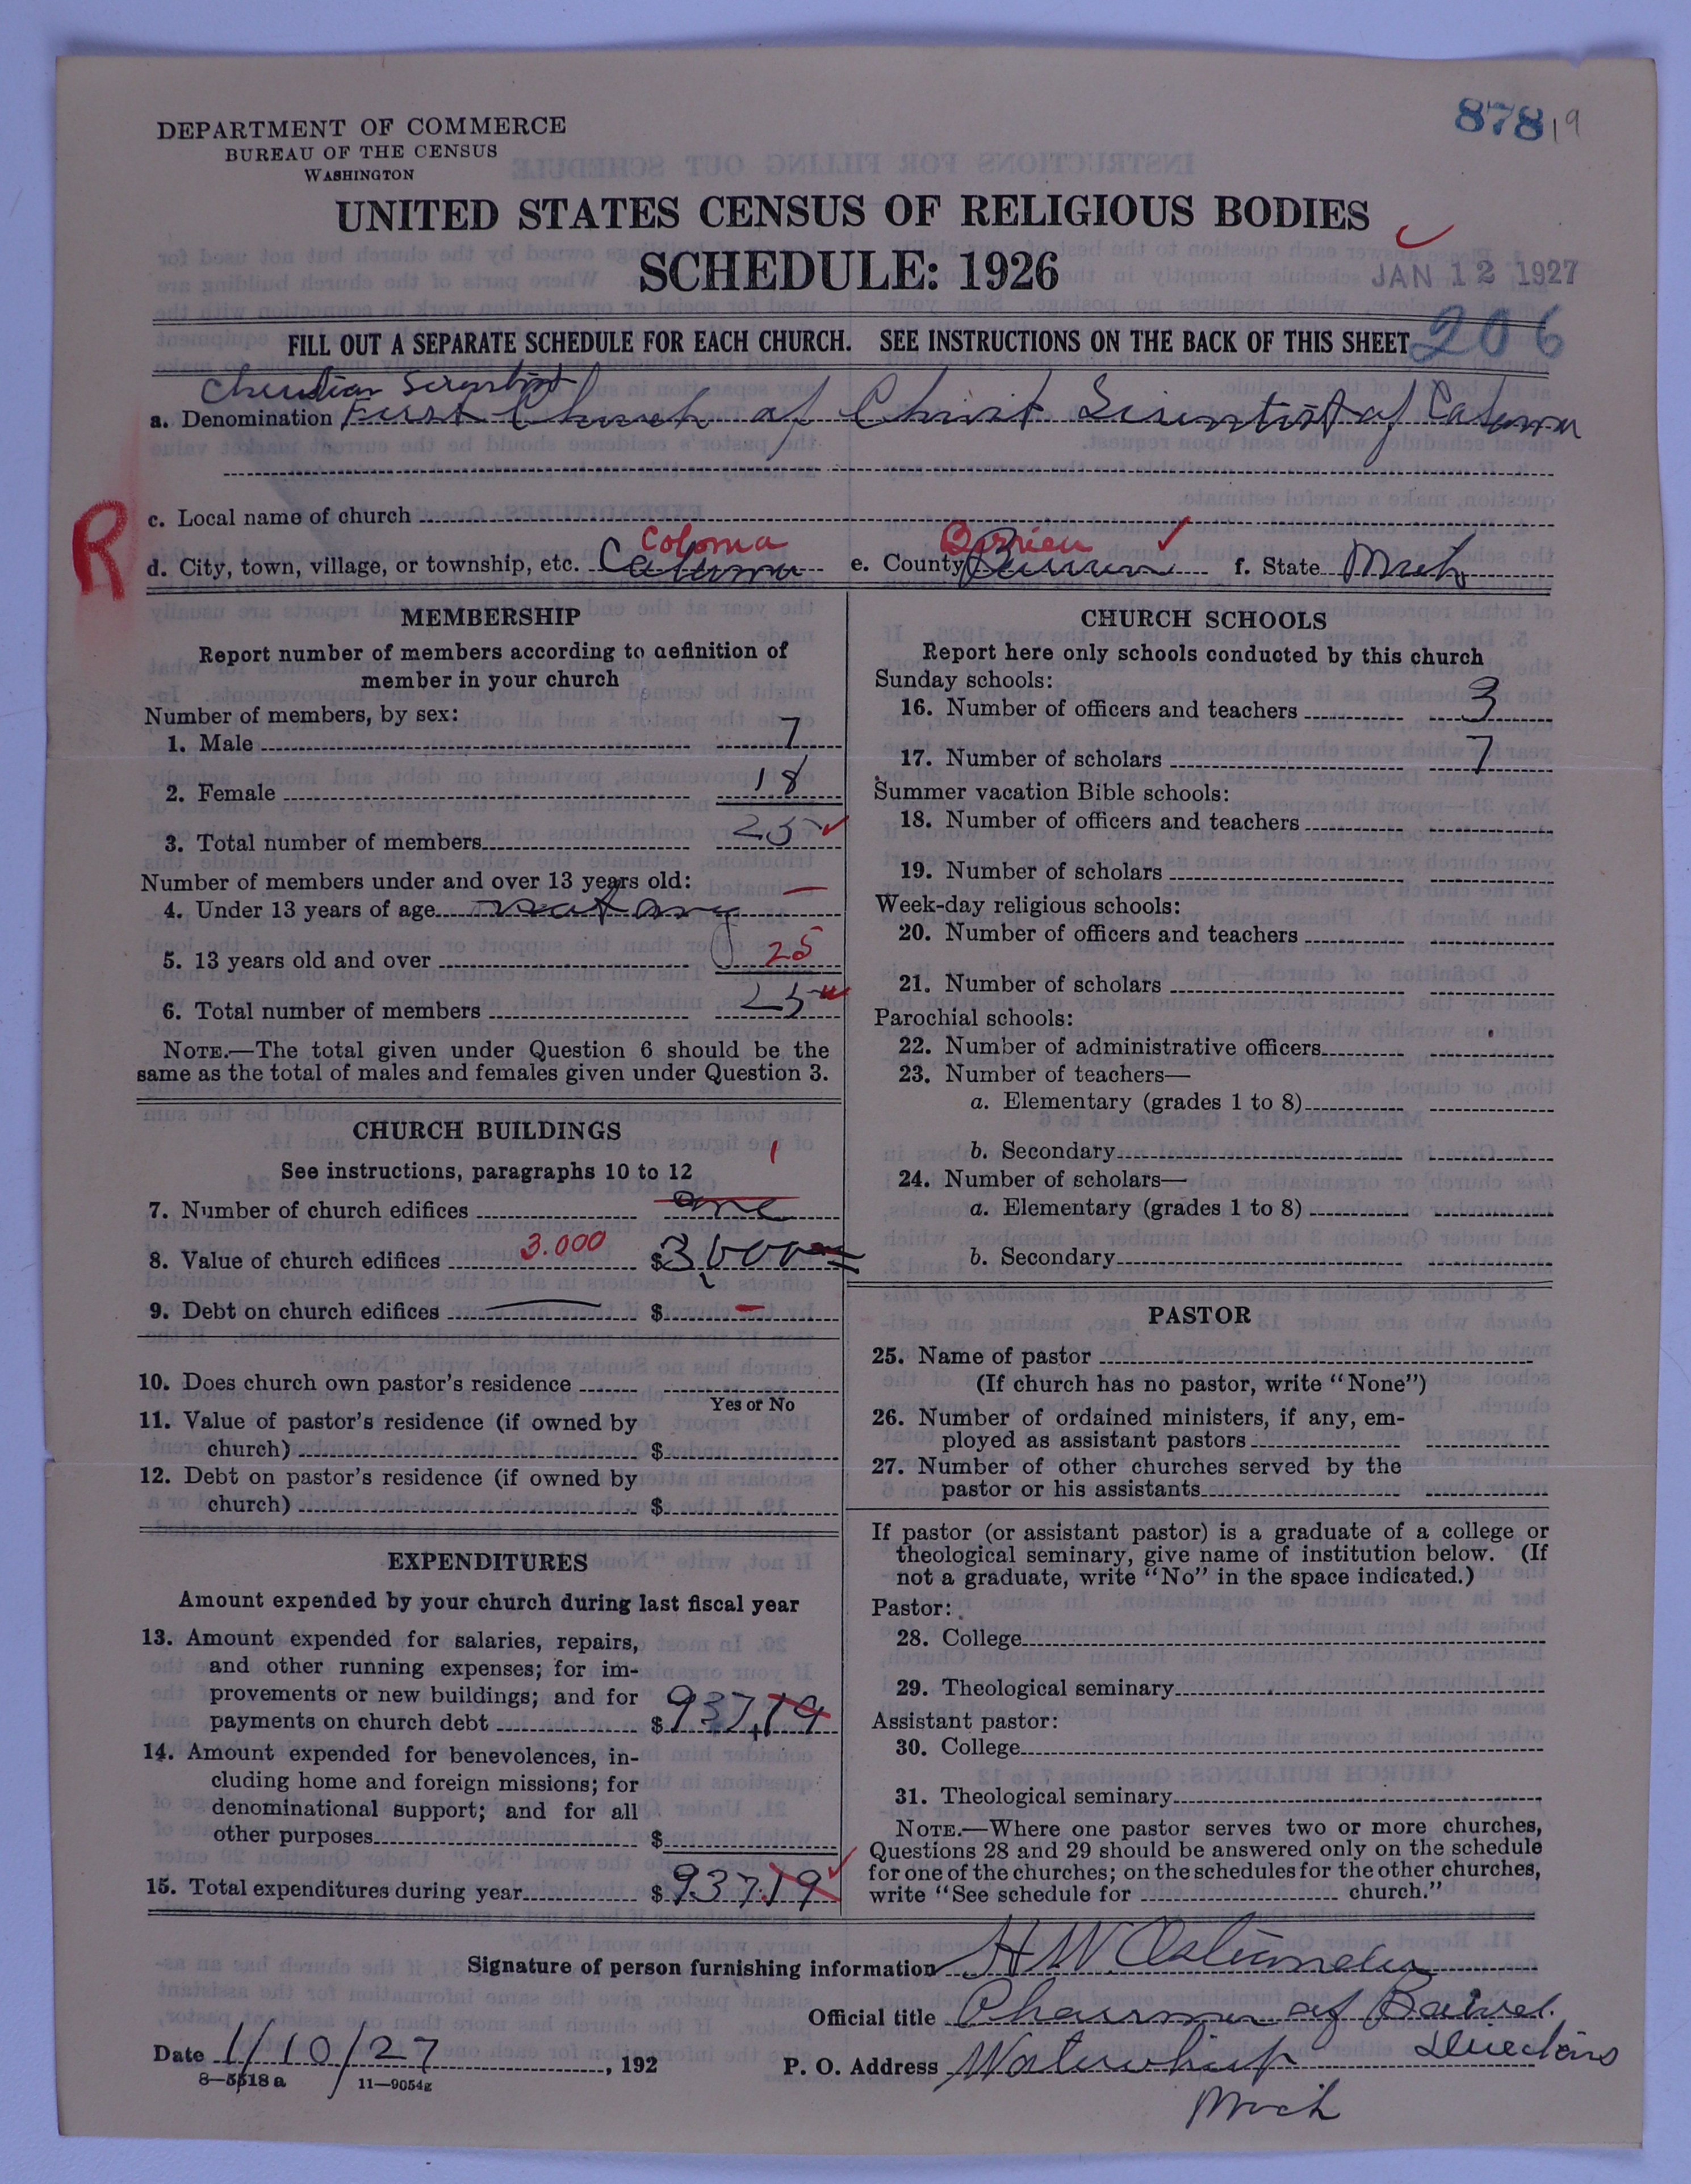 87819
DEPARTMENT OF COMMERCE
BUREAU OF THE CENSUS
WASHINGTON
UNITED STATES CENSUS OF RELIGIOUS BODIES
SCHEDULE: 1926
JAN 12 1927
FILL OUT A SEPARATE SCHEDULE FOR EACH CHURCH. SEE INSTRUCTIONS ON THE BACK OF THIS SHEET
206
Christian Scientist
a. Denomination First Church of Christ Scientist of Coloma
R
c. Local name of church
Coloma Berrien
d. City, town, village, or township, etc. Coloma e. County Berrien f. State Mich
MEMBERSHIP
Report number of members according to definition of
member in your church
Number of members, by sex:
1. Male 7
2. Female 18
3. Total number of members 25
Number of members under and over 13 years old:
4. Under 13 years of age not any
5. 13 years old and over 25
6. Total number of members 25
NOTE.—The total given under Question 6 should be the
same as the total of males and females given under Question 3.
CHURCH BUILDINGS
See instructions, paragraphs 10 to 12
1
7. Number of church edifices one
8. Value of church edifices 3.000 $3,000
9. Debt on church edifices $ —
10. Does church own pastor's residence
Yes or No
11. Value of pastor's residence (if owned by
church) $
12. Debt on pastor's residence (if owned by
church) $
EXPENDITURES
Amount expended by your church during last fiscal year
13. Amount expended for salaries, repairs,
and other running expenses; for im-
provements or new buildings; and for
payments on church debt $937.19
14. Amount expended for benevolences, in-
cluding home and foreign missions; for
denominational support; and for all
other purposes $
15. Total expenditures during year $937.19
CHURCH SCHOOLS
Report here only schools conducted by this church
Sunday schools:
16. Number of officers and teachers 3
17. Number of scholars 7
Summer vacation Bible schools:
18. Number of officers and teachers
19. Number of scholars
Week-day religious schools:
20. Number of officers and teachers
21. Number of scholars
Parochial schools:
22. Number of administrative officers
23. Number of teachers—
a. Elementary (grades 1 to 8)
b. Secondary
24. Number of scholars—
a. Elementary (grades 1 to 8)
b. Secondary
PASTOR
25. Name of pastor
(If church has no pastor, write "None")
26. Number of ordained ministers, if any, em-
ployed as assistant pastors
27. Number of other churches served by the
pastor or his assistants
If pastor (or assistant pastor) is a graduate of a college or
theological seminary, give name of institution below. (If
not a graduate, write "No" in the space indicated.)
Pastor:
28. College
29. Theological seminary
Assistant pastor:
30. College
31. Theological seminary
NOTE.—Where one pastor serves two or more churches,
Questions 28 and 29 should be answered only on the schedule
for one of the churches; on the schedules for the other churches,
write "See schedule for church."
Signature of person furnishing information H W
Official title Chairman of Board
Directors
Date 1/10/27, 192 P. O. Address
8—5518a 11—9054g
Mich